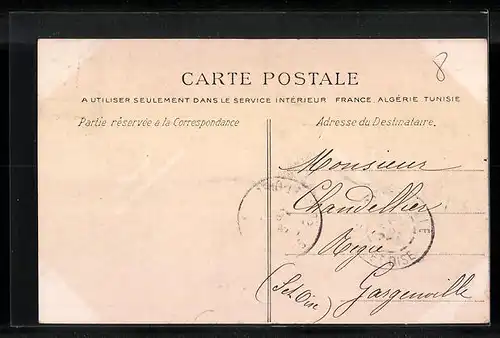 8
CARTE POSTALE
A UTILISER SEULEMENT DANS LE SERVICE INTÉRIEUR FRANCE, ALGÉRIE TUNISIE
Partie réservée à la Correspondance
Adresse du Destinataire.
Monsieur
Chandellier
Régie
Gargenville
(S et Oise)
ET OISE